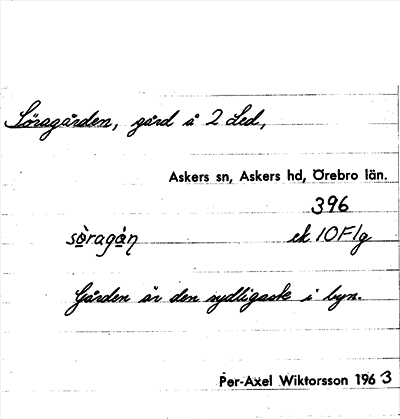 Söragården, gård å 2 Led,
Askers sn, Askers hd, Örebro län.
396
sö̀ragàṇ ek. 10F1g
Gården är den sydligaste i byn.
Per-Axel Wiktorsson 1963